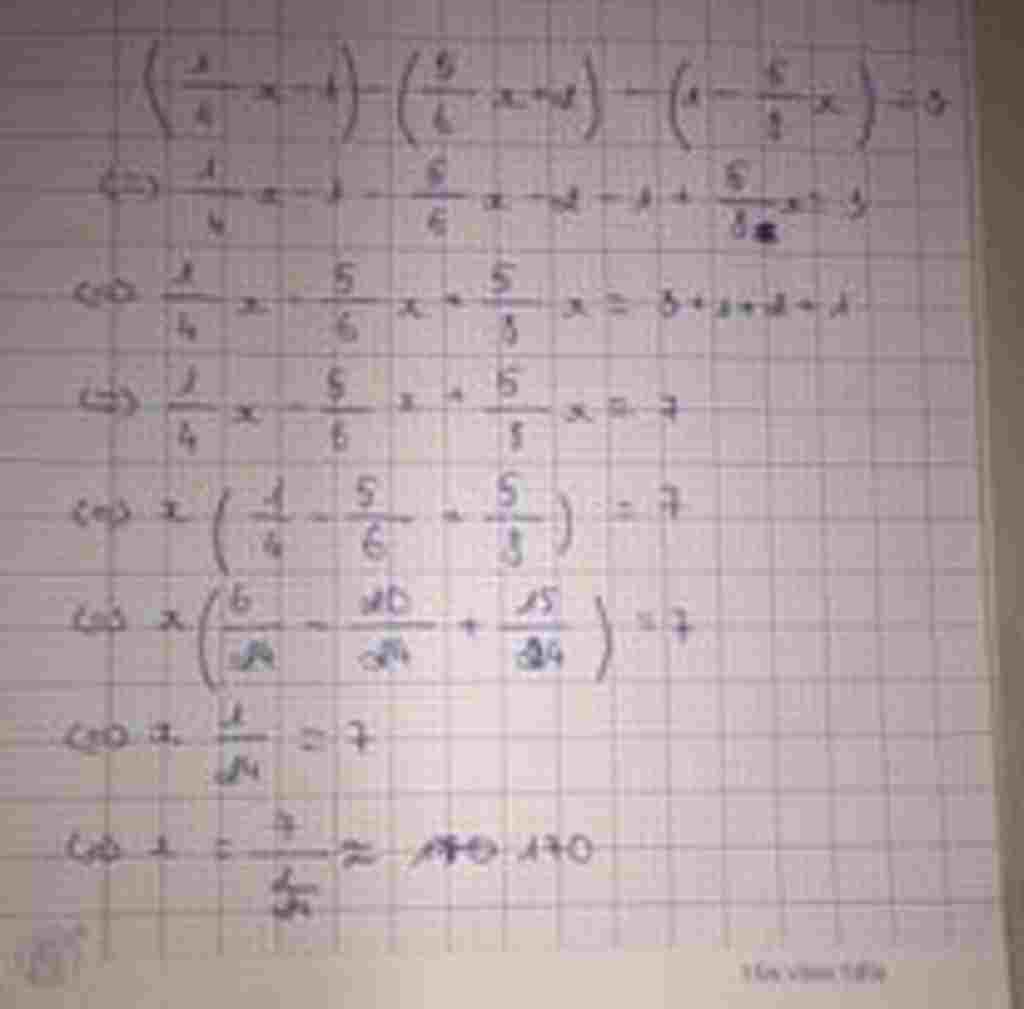 (1/4 x - 1) - (5/6 x + 2) - (1 - 5/8 x) = 3
(=) 1/4 x - 1 - 5/6 x - 2 - 1 + 5/8 x = 3
(=) 1/4 x - 5/6 x + 5/8 x = 3 + 1 + 2 + 1
(=) 1/4 x - 5/6 x + 5/8 x = 7
(=) x (1/4 - 5/6 + 5/8) = 7
(=) x (6/24 - 20/24 + 15/24) = 7
(=) x. 1/24 = 7
(=) x = 7/(1/24) ≈ 170